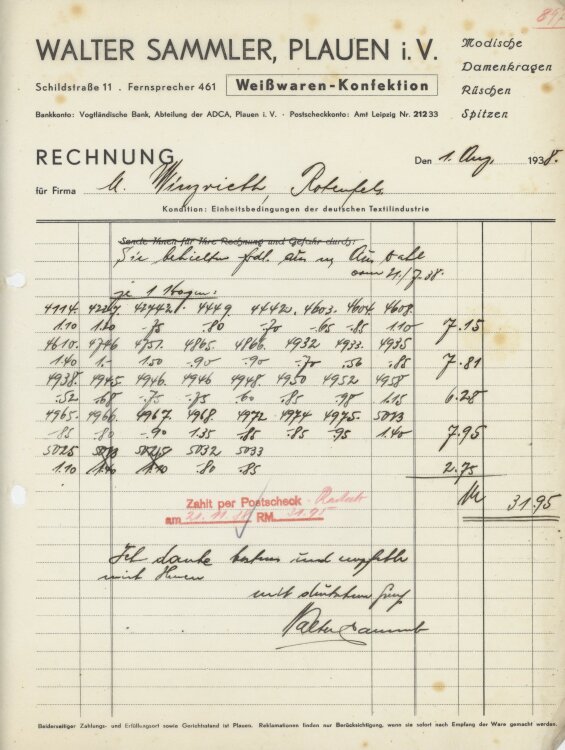 WALTER SAMMLER, PLAUEN i. V.
Modische
Damenkragen
Rüschen
Spitzen
Schildstraße 11 . Fernsprecher 461 Weißwaren-Konfektion
Bankkonto: Vogtländische Bank, Abteilung der ADCA, Plauen i. V. · Postscheckkonto: Amt Leipzig Nr. 21233
RECHNUNG
Den 1. Aug. 1938.
für Firma Rotenfels
Kondition: Einheitsbedingungen der deutschen Textilindustrie
Sande Ihnen für Ihre Rechnung und Gefahr durch:
Sie behielten frdl. aus m Auswahl
vom 21./7.38.
je 1 Kragen:
4114. 4449. 4442. 4603. 4604. 4608.
1.10 1.20 -.75 .80 -.70 -.65 -.85 1.10 7.15
4610. 4746 4751. 4865. 4866. 4932 4933. 4935
1.40 1.- 1.50 -.90 -.90 -.70 .56 -.85 7.81
4938. 4945. 4946. 4946 4948. 4950 4952 4958
-.52 -.68 -.75 -.75 -.60 -.85 -.98 1.15 6.28
4965. 4966. 4967. 4968 4972 4974 4975. 5073
-.85 -.80 -.90 1.35 -.85 -.85 -.95 1.40 7.95
5025 5032 5033
1.10 1.40 1.10 -.80 -.85 2.75
M 31.95
Zahlt per Postscheck
am RM 31.95
Ich danke bestens und empfehle
mich Ihnen
mit deutschem Gruß
Walter Sammler
Beiderseitiger Zahlungs- und Erfüllungsort sowie Gerichtsstand ist Plauen. Reklamationen finden nur Berücksichtigung, wenn sie sofort nach Empfang der Ware gemacht werden.